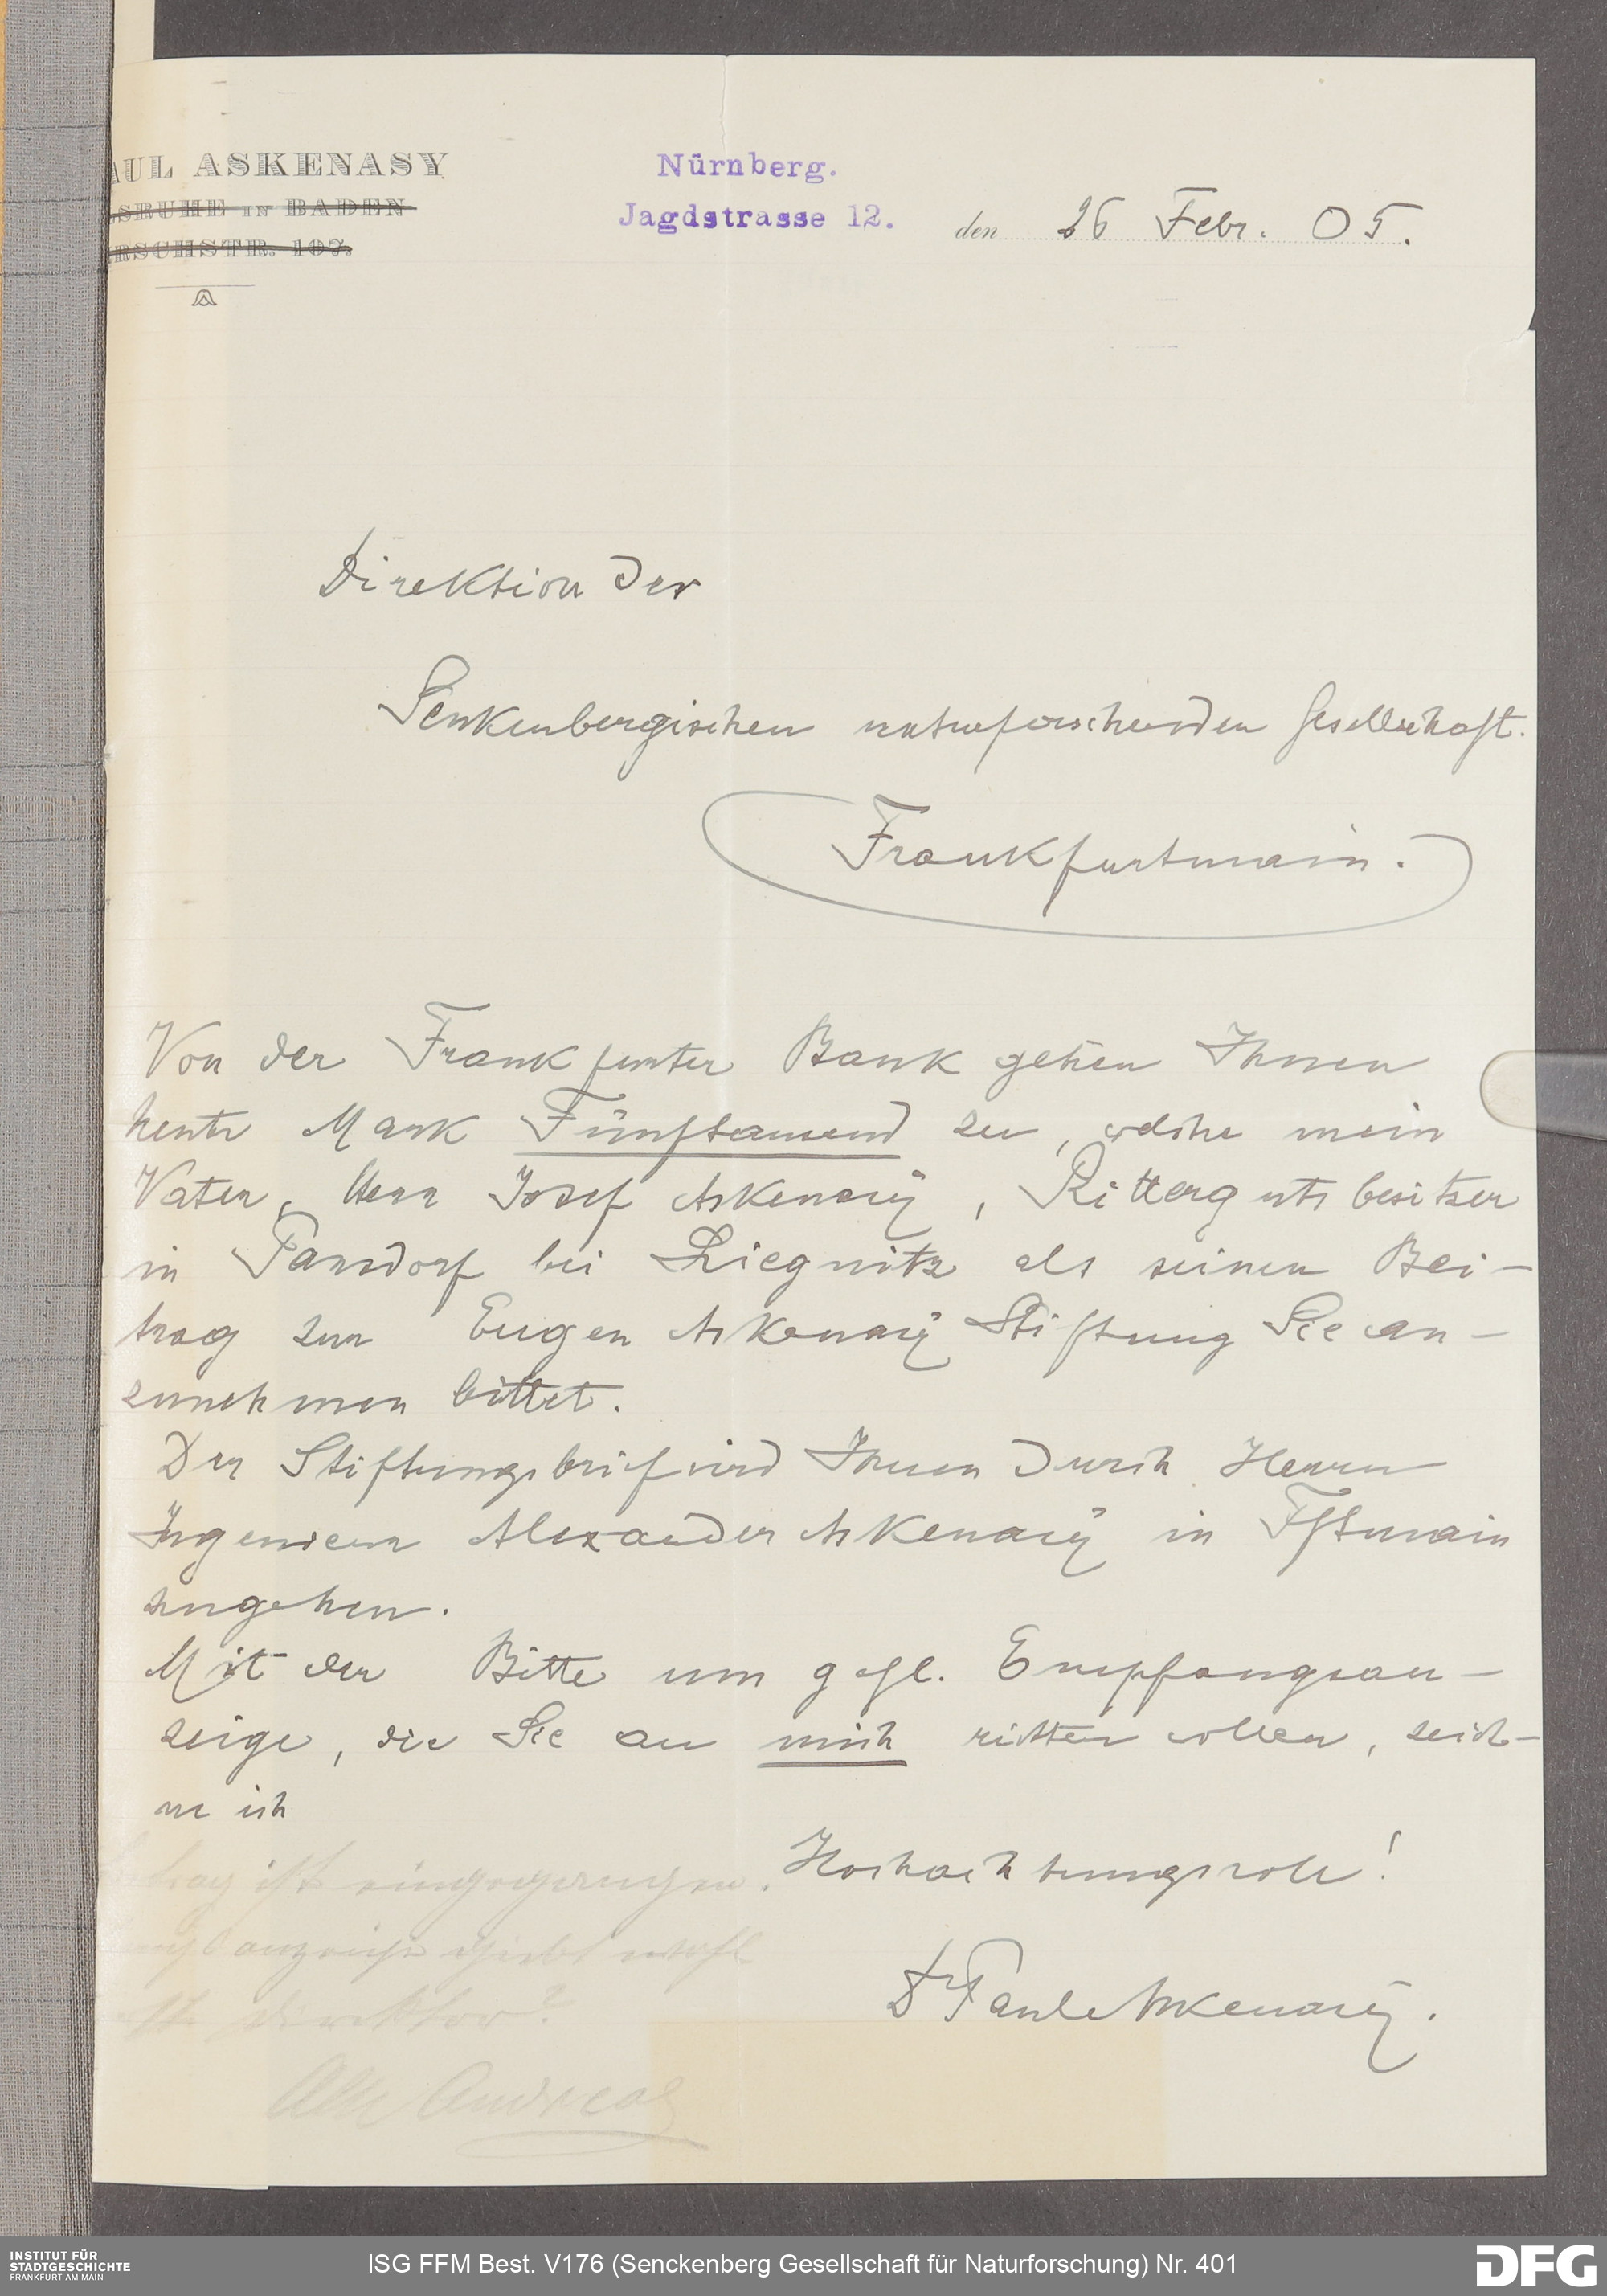 AUL ASKENASY
SRUHE IN BADEN
RSCHSTR. 107.
Nürnberg.
Jagdstrasse 12.
den 26 Febr. 05.
Direktion der
Senkenbergischen naturforschenden Gesellschaft.
Frankfurtmain.
Von der Frankfurter Bank gehen Ihnen
heute Mark Fünftausend zu, welche mein
Vater, Herr Josef Askenasÿ, Rittergutsbesitzer
in Pansdorf bei Liegnitz als seinen Bei-
trag zur Eugen Askenasÿ Stiftung Sie an-
zunehmen bittet.
Der Stiftungsbrief wird Ihnen durch Herrn
Ingenieur Alexander Askenasÿ in Fftmain
zugehen.
Mit der Bitte um gefl. Empfangsan-
zeige, die Sie an mich richten wollen, zeich-
ne ich
Hochachtungsvoll!
Dr Paul Askenasÿ.
trag ist eingegangen.
anzeige giebt wohl
Direktor?
Andreae
INSTITUT FÜR
STADTGESCHICHTE
FRANKFURT AM MAIN
ISG FFM Best. V176 (Senckenberg Gesellschaft für Naturforschung) Nr. 401
DFG